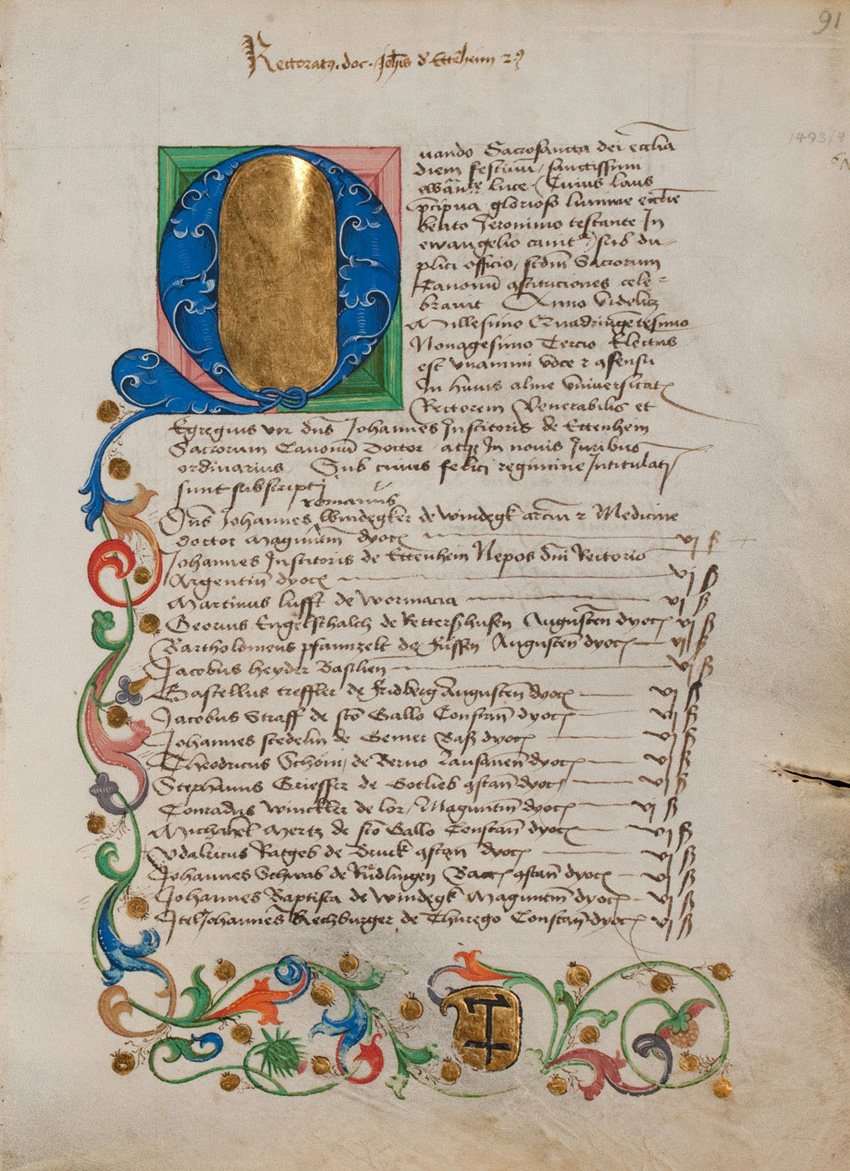 91
Rectoratus doc. Joh̄is d' Ettēheim 2ꝰ
1493/4
Quando Sacrosancta dei ecc̄lia
diem festiuū sanctissim
luce Cuius laus
p̄cipua gloriosū lumine ecc̄lie
beato Jeronimo testante In
ewangelio canit sub du
plici officio, sedm̄ Sacrorum
Canonū ꝯstituciones cele-
brauit Anno videlicꝫ
Millesimo Quadringētesimo
Nonagesimo Tercio Electus
est vnanimi voce ⁊ ꝯsensu
In huius alme vniuersitatꝭ
Rectorem Venerabilis et
Egregius vir dn̄s Johannes Institoris de Ettenhem
Sacrorum Canonū Doctor atqꝫ In nouis Juribus
ordinarius, Sub cuius felici regimine Intitulati
sunt subscripti
romanus
Dn̄s Johannes Windegker de windegk arciū ⁊ Medicine
doctor Magūtin̄ dyocꝭ vj ß
Johannes Institoris de Ettenhein Nepos dn̄i Rectoris
Argentin̄ dyocꝭ vj ß
Martinus lufft de wormacia vj ß
Georius Engelschalch de Rettershusen Augusten̄ dyocꝭ vj ß
Bartholomeus pfanzelt de fussen Augusten̄ dyocꝭ vj ß
Jacobus heyder Basilien̄ vj ß
Gastellus treffler de fridberg Augusten̄ dyocꝭ vj ß
Jacobus Straff de sc̄to Gallo Constan̄ dyocꝭ vj ß
Johannes stedelin de Gemer Basꝭ dyocꝭ vj ß
Theodricus Schöni de Berno Lausanen̄ dyocꝭ vj ß
Stephanus Grieffer de Gotlieb ꝯstan̄ dyocꝭ vj ß
Conradus winckler de lor, Maguntin̄ dyocꝭ vj ß
Michahel Mertz de sc̄to Gallo Constan̄ dyocꝭ vj ß
Vdalricus Ratges de Bruck ꝯstan̄ dyocꝭ vj ß
Johannes Schwab de Rüdlingen ꝯstan̄ dyocꝭ vj ß
Johannes Baptista de windegk Maguntin̄ dyocꝭ vj ß
JtelJohannes Rechburger de Thurego Constan̄ dyocꝭ vj ß